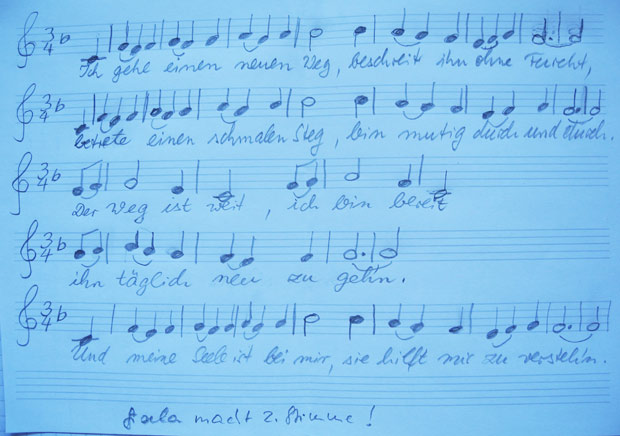 Ich gehe einen neuen Weg, beschreit ihn ohne Furcht,
betrete einen schmalen Steg, bin mutig durch und durch.
Der Weg ist weit, ich bin bereit
ihn täglich neu zu geh'n.
Und meine Seele ist bei mir, sie hilft mir zu versteh'n.
macht 2. Stimme!